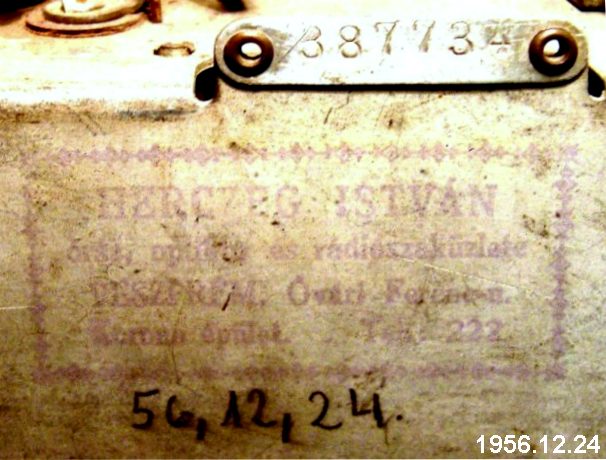 387734
HERCZEG ISTVÁN
órás, optikus és rádiószaküzlete
VESZPRÉM, Óvári Ferenc-u.
Korona épület. Tel.: 222
56,12,24.
1956.12.24